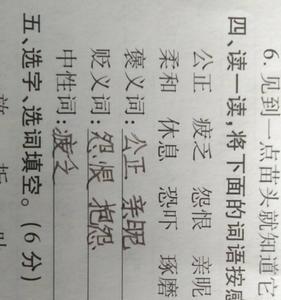 6. 见到一点苗头就知道它
四、读一读,将下面的词语按感
公正 疲乏 怨恨 亲昵
柔和 休息 恐吓 琢磨
褒义词: 公正 亲昵
贬义词: 怨恨 抱怨
中性词: 疲乏
五、选字、选词填空。(6分)